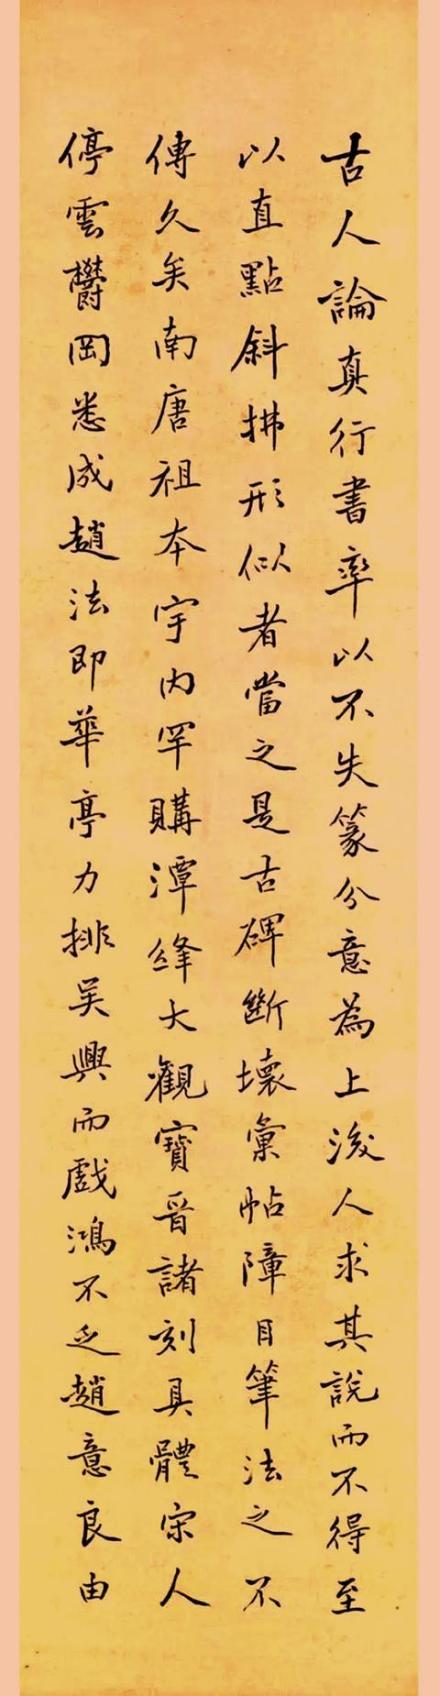 古人論真行書率以不失篆分意為上後人求其說而不得至
以直點斜拂形似者當之是古碑斷壞彙帖障目筆法之不
傳久矣南唐祖本宇内罕購潭絳大觀寶晉諸刻具體宋人
停雲欝岡悉成趙法即華亭力排吴興而戲鴻不乏趙意良由